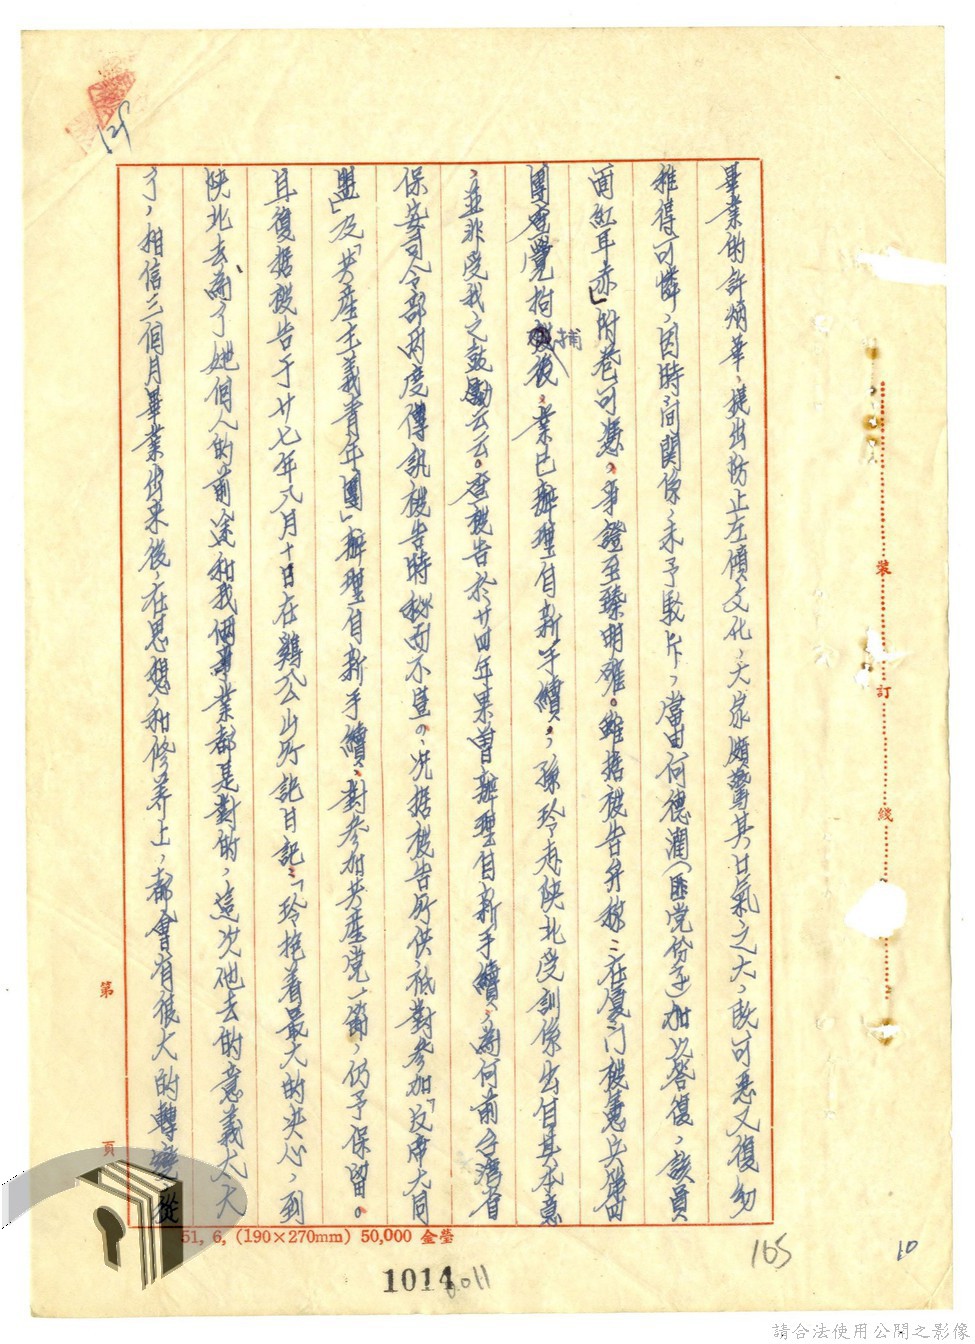 畢業的許炳華，提出防止左傾文化，大家頗驚其口氣之大，既可惡又復幼
稚得可憐，因時间關係，未予駁斥，當由何德潤（匪党份子）加以答復，該員
面紅耳赤」附卷可憑，身證至臻明確。雖据被告弁稱：在厦门被憲兵第四
團逮捕後，業已辦理自新手續，孫玲赴陝北受訓係出自其本意
，並非受我之鼓勵云云。查被告於廿四年果曾辦理自新手續，為何前台湾省
保安司令部两度傳訊被告時秘而不宣。况据被告所供祇對參加「反帝大同
盟」及「共產主義青年團」辦理自新手續，對參加共產党一節，仍予保留。
且復据被告于廿七年八月十日在鷄公山所記日記：「玲抱着最大的决心，到
陝北去，為了她個人的前途和我倆事業都是對的，這次他去的意義太大
了，相信三個月畢業出來後，在思想和修养上，都會有很大的轉變從
裝
訂
綫
第
頁
51, 6, (190×270mm) 50,000 金瑩
1014
165
10
請合法使用公開之影像